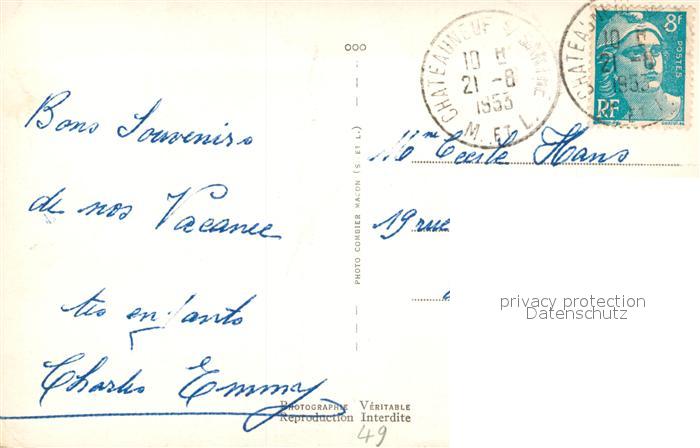 Bons Souvenirs
de nos Vacance
tes enfants
Charles Emmy
PHOTO COMBIER MACON (S. ET L.)
CHATEAUNEUF S/ SARTHE
10 H
21 - 8
1953
M. ET L.
10 H
21 - 8
1953
8F
POSTES
RF
Mme Cecile Hans
19 rue
privacy protection
Datenschutz
PHOTOGRAPHIE VÉRITABLE
Reproduction Interdite
49